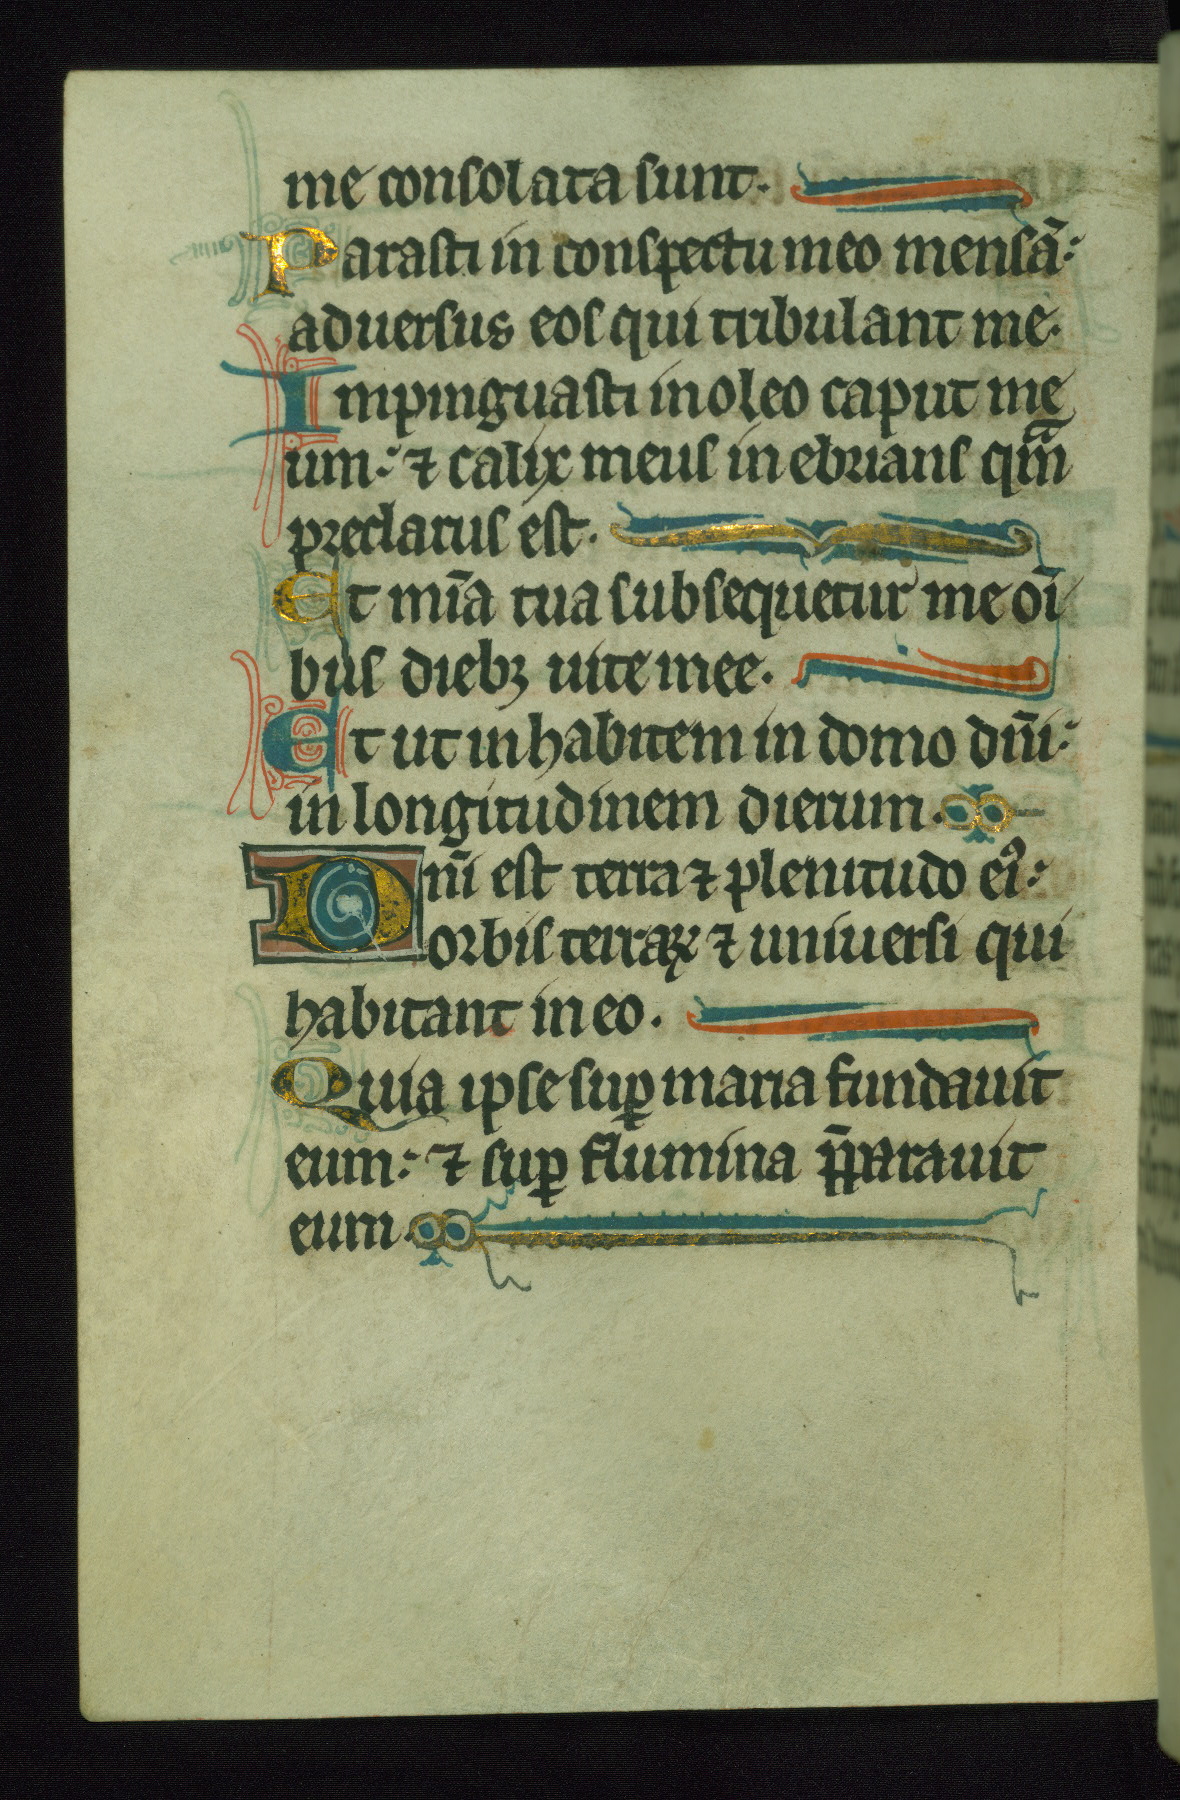 me consolata sunt.
Parasti in conspectu meo mensā:
aduersus eos qui tribulant me.
Impinguasti in oleo caput me
um: ⁊ calix meus inebrians qͣm
preclarus est.
Et mīa tua subsequetur me oī
bus diebꝫ uite mee.
Et ut inhabitem in domo dn̄i:
in longitudinem dierum.
Dn̄i est terra ⁊ plenitudo eiꝰ:
orbis terraꝝ ⁊ uniuersi qui
habitant in eo.
Quia ipse suꝑ maria fundauit
eum: ⁊ suꝑ flumina p̄parauit
eum.